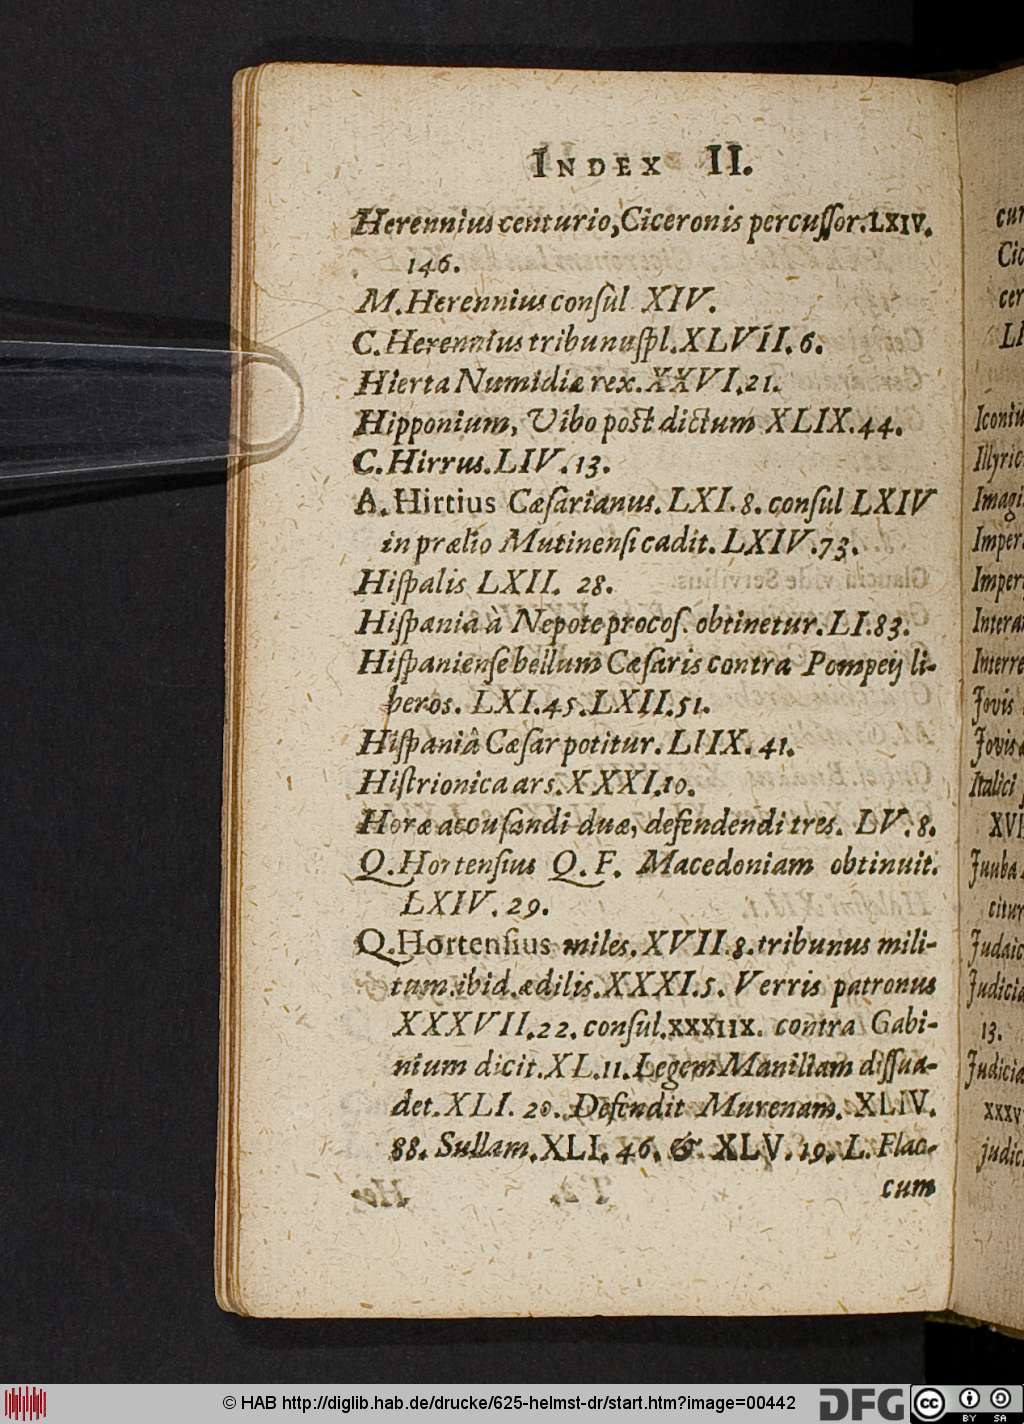 INDEX II.
Herennius centurio, Ciceronis percuſſor. LXIV.
146.
M. Herennius conſul XIV.
C. Herennius tribunuſpl. XLVII. 6.
Hierta Numidiæ rex. XXVI. 21.
Hipponium, Vibo poſt dictum XLIX. 44.
C. Hirrus. LIV. 13.
A. Hirtius Cæſarianus. LXI. 8. conſul LXIV
in prælio Mutinenſi cadit. LXIV. 73.
Hiſpalis LXII. 28.
Hiſpania à Nepote procoſ. obtinetur. LI. 83.
Hiſpanienſe bellum Cæſaris contra Pompeij li-
beros. LXI. 45. LXII. 51.
Hiſpaniâ Cæſar potitur. LIIX. 41.
Hiſtrionica ars. XXXI. 10.
Horæ accuſandi duæ, defendendi tres. LV. 8.
Q. Hortenſius Q. F. Macedoniam obtinuit.
LXIV. 29.
Q. Hortenſius miles. XVII. 8. tribunus mili-
tum. ibid. ædilis. XXXI. 5. Verris patronus
XXXVII. 22. conſul. XXXIIX. contra Gabi-
nium dicit. XL. 11. Legem Maniliam diſſua-
det. XLI. 20. Defendit Murenam. XLIV.
88. Sullam. XLI. 46. & XLV. 19. L. Flac-
cum
cur
Cic
cer
LI
Iconiu
Illyric
Imagi
Imper
Imper
Intera
Interre
Jovis
Jovis
Italici
XVI
Juuba
citur
Judaic
Judicia
13.
Judicia
xxxv
judic
© HAB http://diglib.hab.de/drucke/625-helmst-dr/start.htm?image=00442
DFG
cc
BY SA